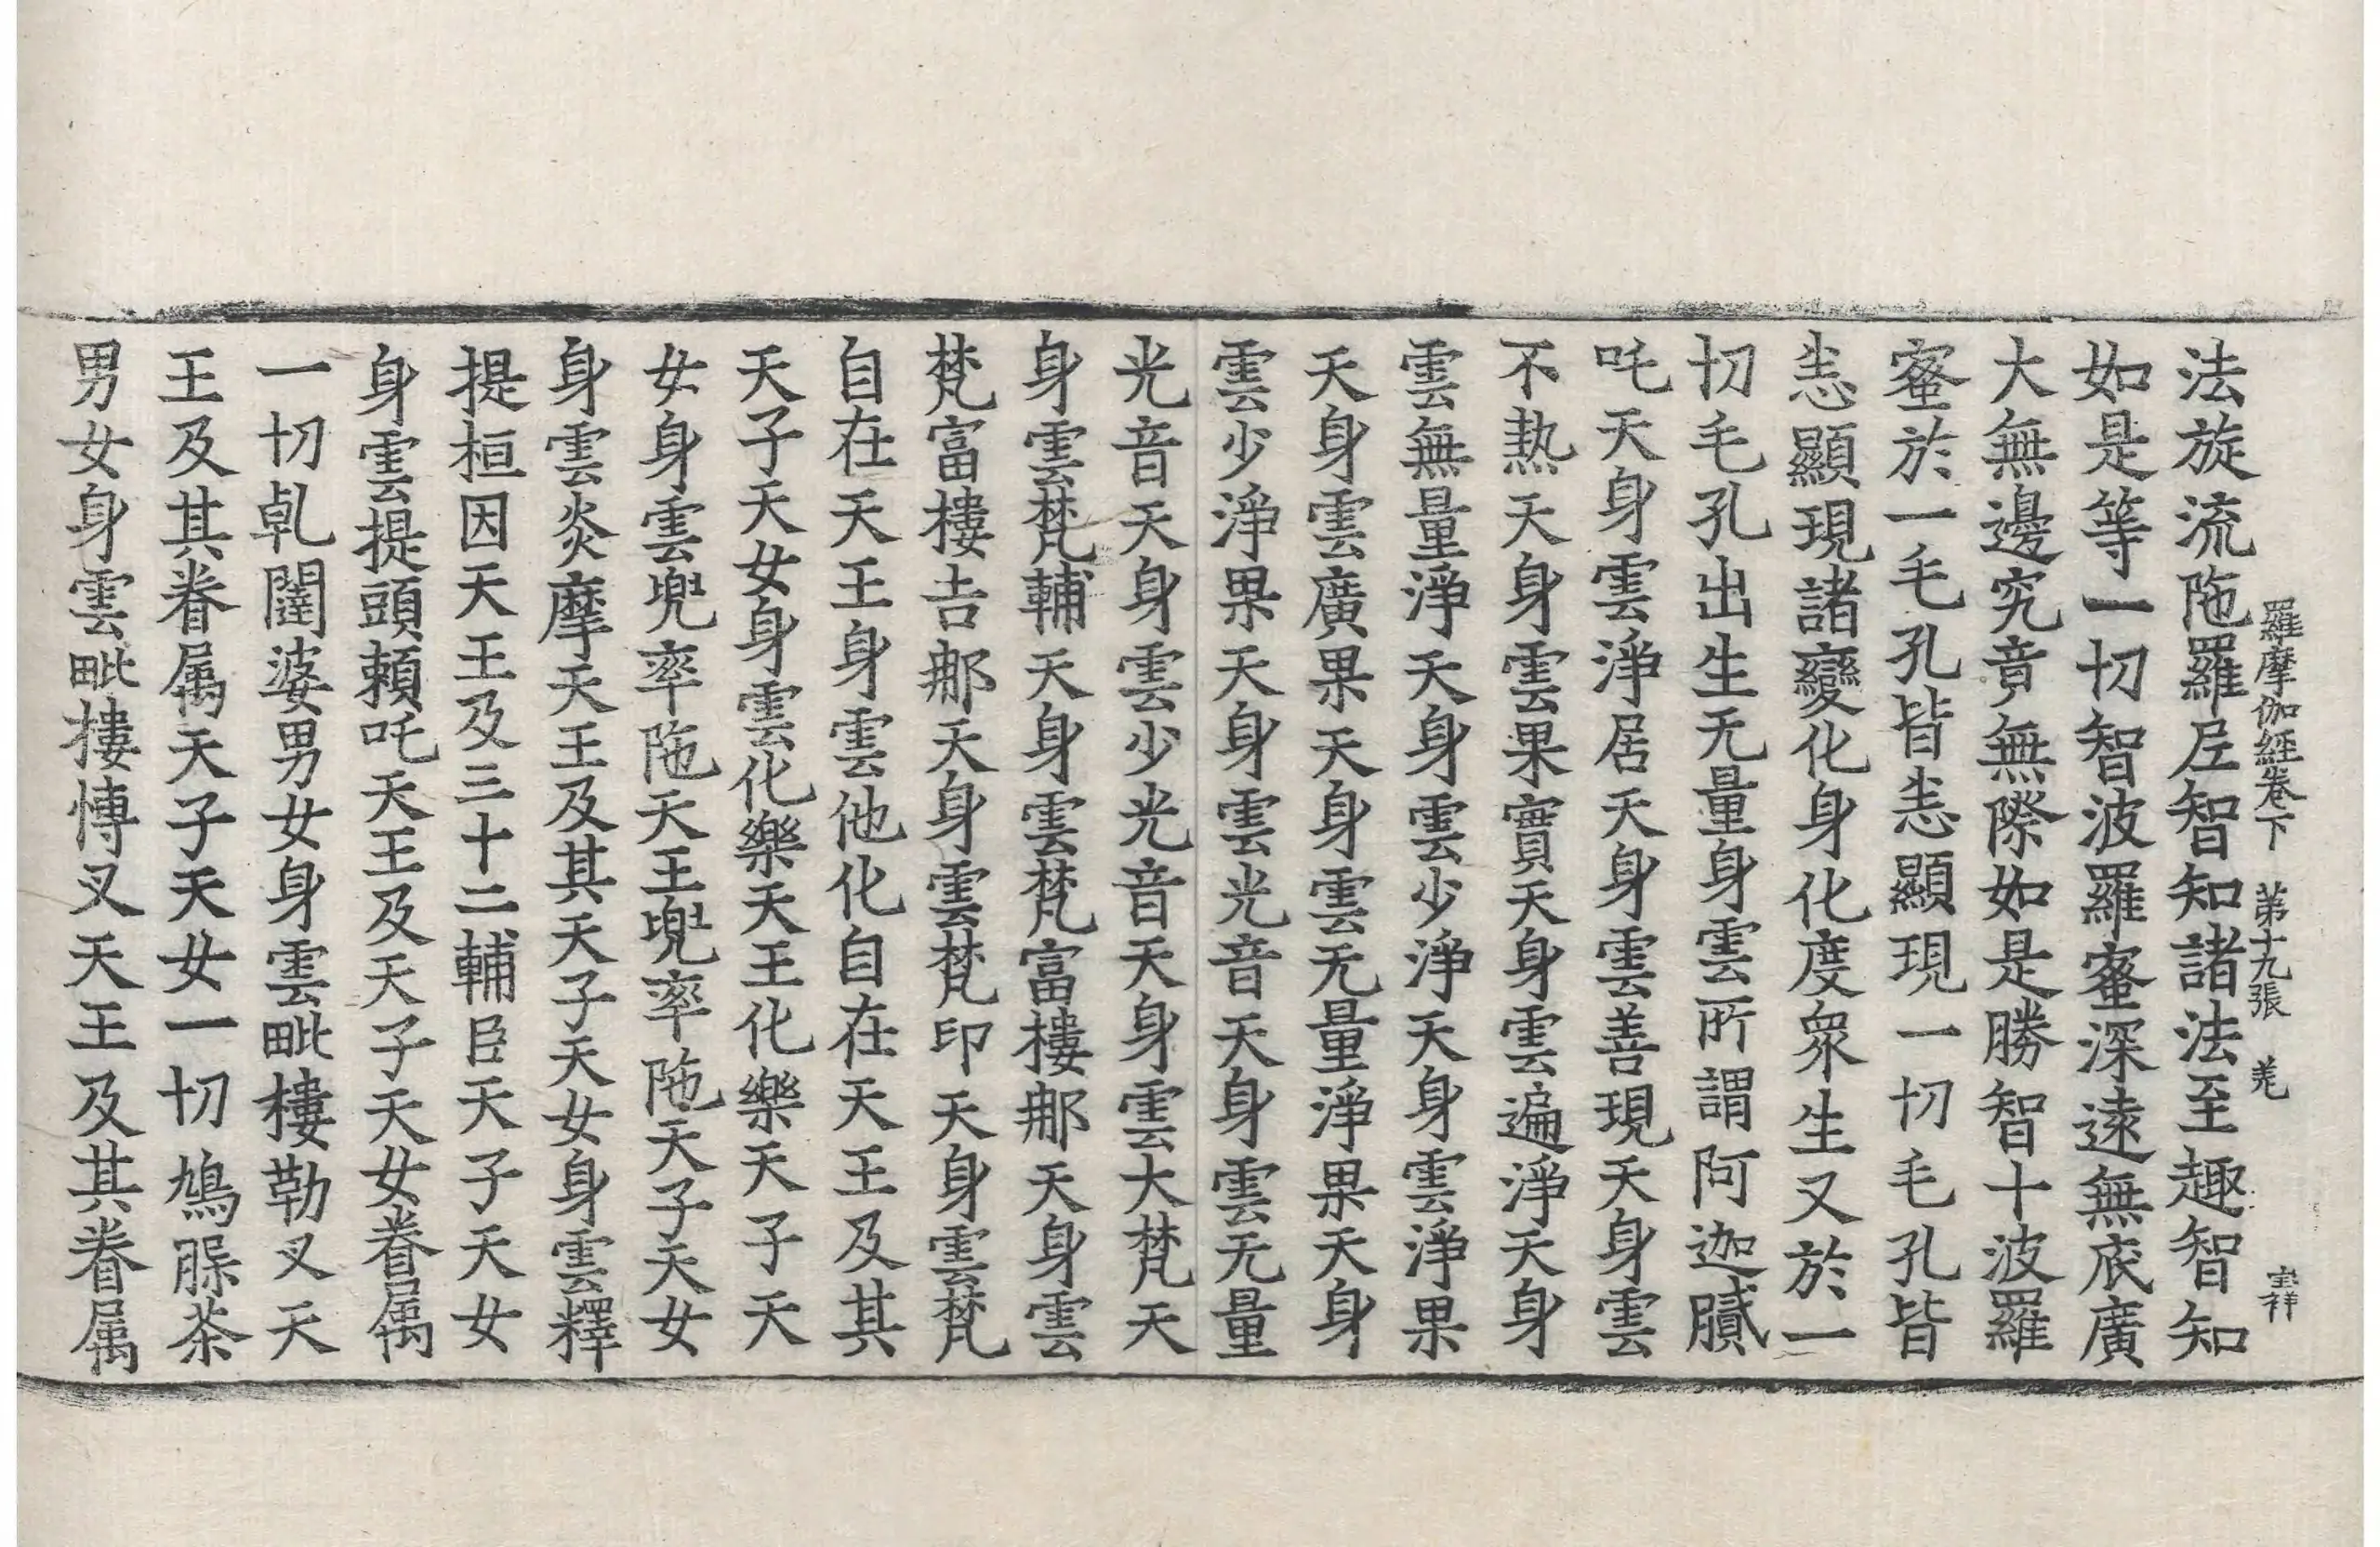 羅摩伽經卷下　第十九張　羌　宝祥
法旋流陁羅尼智知諸法至趣智知
如是等一切智波羅蜜深遠無底廣
大無邊究竟無際如是勝智十波羅
蜜於一毛孔皆悉顯現一切毛孔皆
悉顯現諸變化身化度衆生又於一
切毛孔出生无量身雲所謂阿迦膩
吒天身雲淨居天身雲善現天身雲
不熱天身雲果實天身雲遍淨天身
雲無量淨天身雲少淨天身雲淨果
天身雲廣果天身雲无量淨果天身
雲少淨果天身雲光音天身雲无量
光音天身雲少光音天身雲大梵天
身雲梵輔天身雲梵富樓那天身雲
梵富樓吉那天身雲梵印天身雲梵
自在天王身雲他化自在天王及其
天子天女身雲化樂天王化樂天子天
女身雲兜率陁天王兜率陁天子天女
身雲炎摩天王及其天子天女身雲釋
提桓因天王及三十二輔臣天子天女
身雲提頭頼吒天王及天子天女眷属
一切乹闥婆男女身雲毗樓勒叉天
王及其眷属天子天女一切鳩脲茶
男女身雲毗摟愽叉天王及其眷属